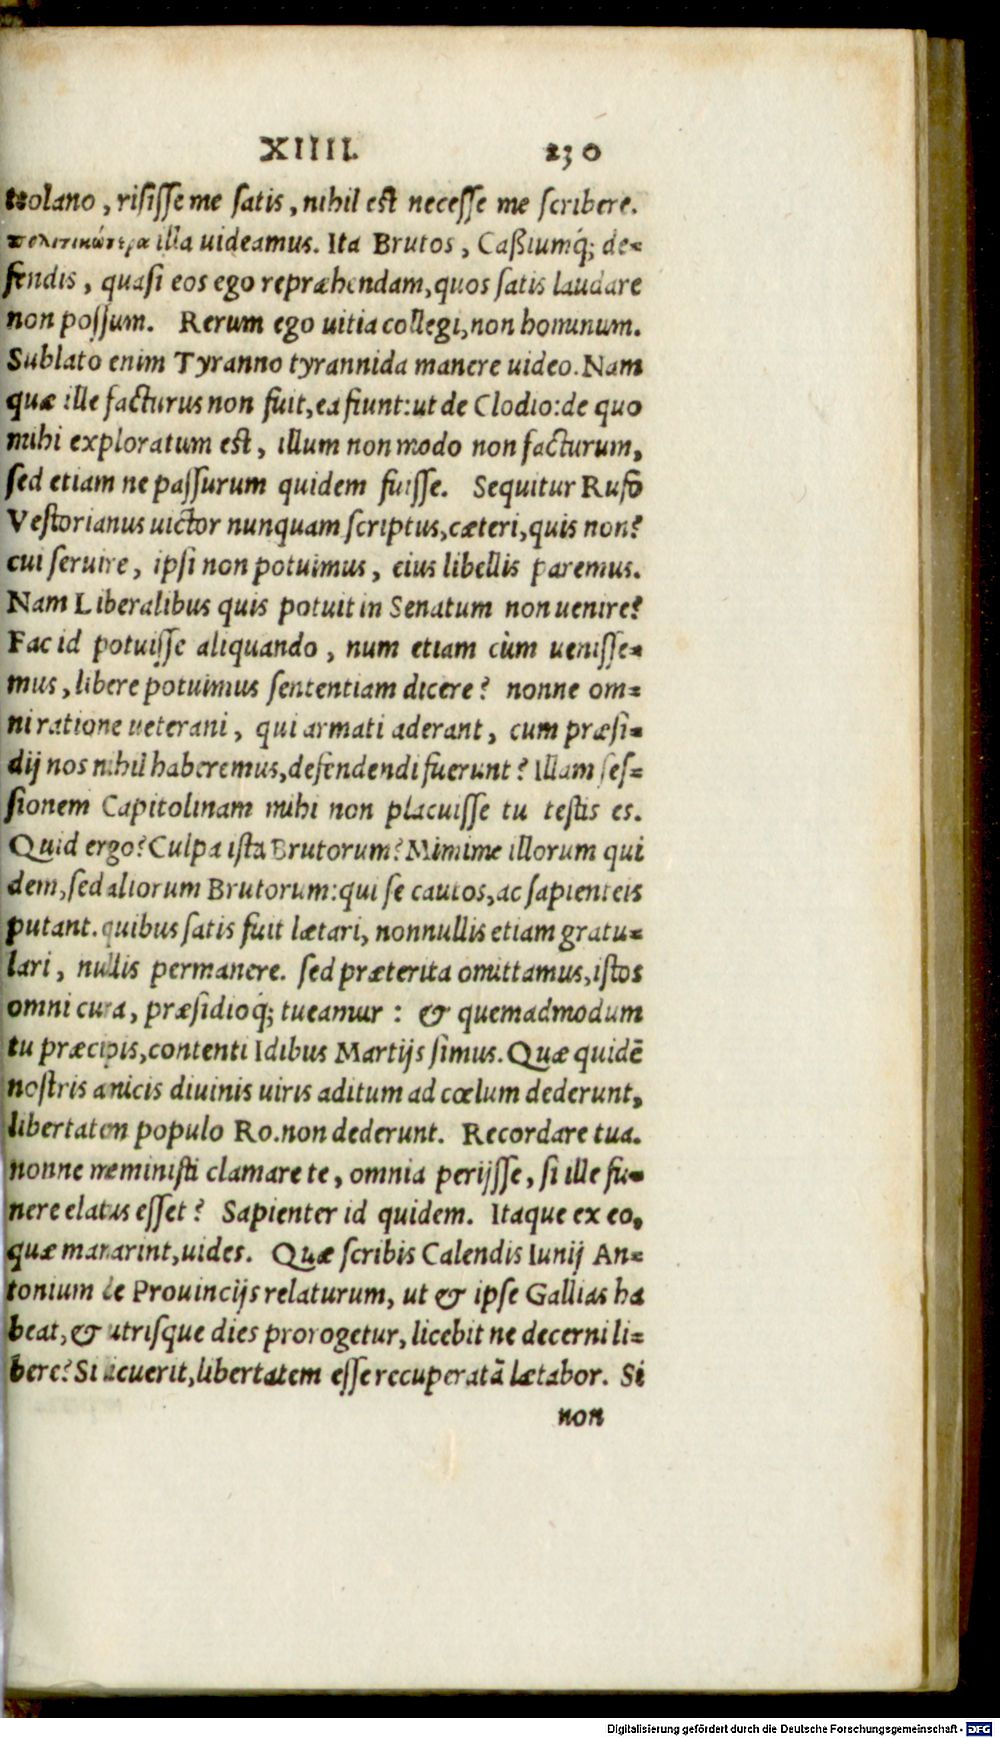 XIIII. 230
teolano, risisse me satis, nihil est necesse me scribere.
πολιτικώτερα illa uideamus. Ita Brutos, Caßiumq́; de-
fendis, quasi eos ego repræhendam, quos satis laudare
non possum. Rerum ego uitia collegi, non hominum.
Sublato enim Tyranno tyrannida manere uideo. Nam
quæ ille facturus non fuit, ea fiunt: ut de Clodio: de quo
mihi exploratum est, illum non modo non facturum,
sed etiam ne passurum quidem fuisse. Sequitur Rufō
Vestorianus uictor nunquam scriptus, cæteri, quis non?
cui seruire, ipsi non potuimus, eius libellis paremus.
Nam Liberalibus quis potuit in Senatum non uenire?
Fac id potuisse aliquando, num etiam cùm uenisse-
mus, libere potuimus sententiam dicere? nonne om-
ni ratione ueterani, qui armati aderant, cum præsi-
dij nos nihil haberemus, defendendi fuerunt? Illam ses-
sionem Capitolinam mihi non placuisse tu testis es.
Quid ergo? Culpa ista Brutorum? Mimime illorum qui
dem, sed aliorum Brutorum: qui se cautos, ac sapienteis
putant. quibus satis fuit lætari, nonnullis etiam gratu-
lari, nullis permanere. sed præterita omittamus, istos
omni cura, præsidioq́; tueamur: & quemadmodum
tu præcipis, contenti Idibus Martijs simus. Quæ quidē
nostris amicis diuinis uiris aditum ad cœlum dederunt,
libertatem populo Ro. non dederunt. Recordare tua.
nonne meministi clamare te, omnia perijsse, si ille fu-
nere elatus esset? Sapienter id quidem. Itaque ex eo,
quæ manarint, uides. Quæ scribis Calendis Iunij An-
tonium de Prouincijs relaturum, ut & ipse Gallias ha
beat, & utrisque dies prorogetur, licebit ne decerni li-
bere? Si licuerit, libertatem esse recuperatā lætabor. Si
non
Digitalisierung gefördert durch die Deutsche Forschungsgemeinschaft - DFG